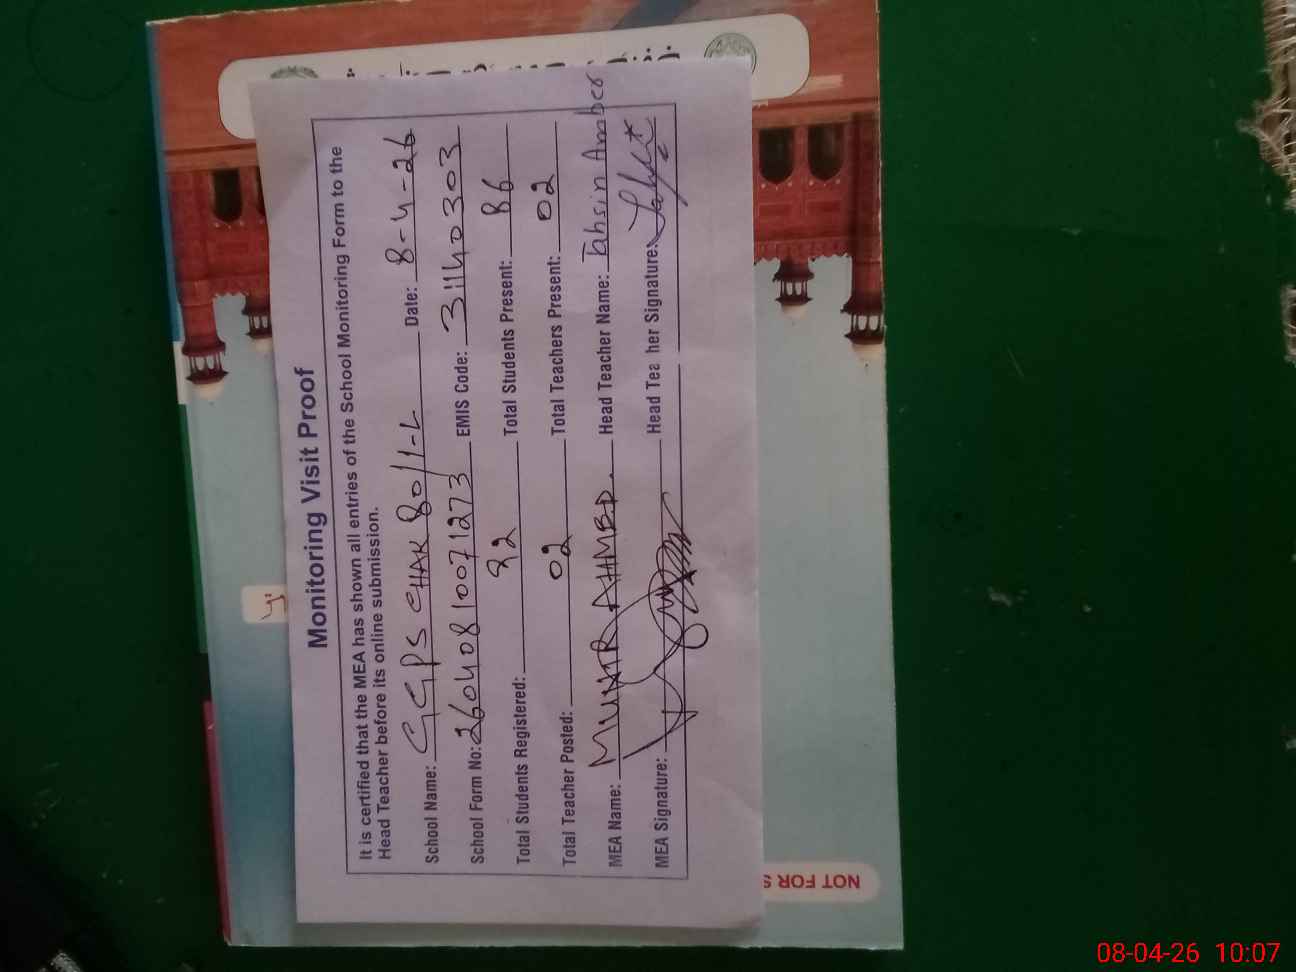 Monitoring Visit Proof
It is certified that the MEA has shown all entries of the School Monitoring Form to the
Head Teacher before its online submission.
School Name: GGPS CHAK 80/1-L Date: 8-4-26
School Form No: 26040810071273 EMIS Code: 31140303
Total Students Registered: 92 Total Students Present: 86
Total Teacher Posted: 02 Total Teachers Present: 02
MEA Name: MUNIR AHMED. Head Teacher Name: Tahsin Amber
MEA Signature: Head Teacher Signature:
NOT FOR S
08-04-26 10:07